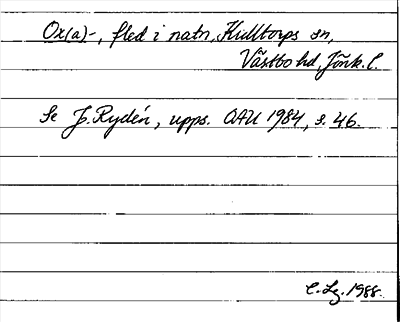 Ox(a)-, fled i natn, Kulltorps sn,
Västbo hd, Jönk. l.
Se J. Rydén, upps. OAU 1984, s. 46.
C. Lg. 1988.